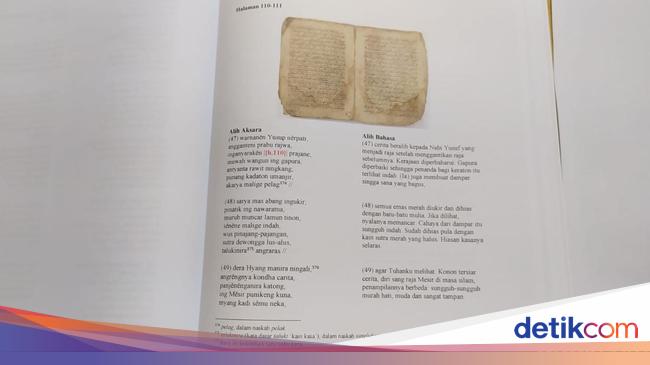 Halaman 110-111
Alih Aksara
(47) warnanên Yusup nêrpati,
angganteni prabu rajwa,
nganyarakên [[h.110]] prajane,
muwah wangun ing gapura,
amyanta rawit rungkang,
punang kadaton umanjir,
akarya malige pelag³⁷⁴ //
(48) sarya mas abang ingukir,
pinatik ing nawarama,
muruh muncar lamun tinon,
sênêne malige indah,
wus pinajang-pajangan,
sutra dewongga lus-alus,
talukinira³⁷⁵ angraras //
(49) dera Hyang manira ningali,³⁷⁶
angrêngnya kondha carita,
panjênênganira katong,
ing Mêsir punikeng kuna,
myang kadi sêmu neka,
Alih Bahasa
(47) cerita beralih kepada Nabi Yusuf yang
menjadi raja setelah menggantikan raja
sebelumnya. Kerajaan diperbaharui. Gapura
diperbaiki sehingga penanda bagi keraton itu
terlihat indah. (Ia) juga membuat dampar
singga sana yang bagus.
(48) semua emas merah diukir dan dihias
dengan batu-batu mulia. Jika dilihat,
nyalanya memancar. Cahaya dari dampar itu
sungguh indah. Sudah dihias pula dengan
kain sutra merah yang halus. Hiasan kasanya
selaras.
(49) agar Tuhanku melihat. Konon tersiar
cerita, diri sang raja Mesir di masa silam,
penampilannya berbeda: sungguh-sungguh
murah hati, muda dan sangat tampan.
³⁷⁴ pelag, dalam naskah pelak
detikcom